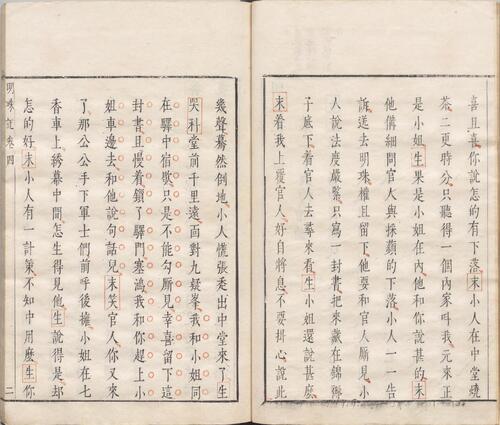 喜且喜你說怎的有下落末小人在中堂燒
茶二更時分只聽得一個內家叫我元來正
是小姐生果是小姐在內他和你說甚的末
他備細問官人與採蘋的下落小人一一告
訴送去明珠權且留下他要和官人厮見小
人說法度嚴緊只寫一封書把來藏在錦褥
子底下着官人去尋來看生小姐還說甚麽
末着我上覆官人好自將息不要掛心說此
幾聲驀然倒地小人慌張走出中堂來了生
哭科堂前千里遠面對九疑峯我和小姐同
在驛中宿歇只是不能勾厮見幸喜留下這
封書且慢着鎖了驛門塞鴻我和你趕上小
姐車邊去和他說句話兒末笑官人你又來
了那公公手下軍士們前呼後擁小姐在七
香車上綉幕中間怎生得見他生說得是却
怎的好末小人有一計策不知中用麽生你
明珠記卷四
二